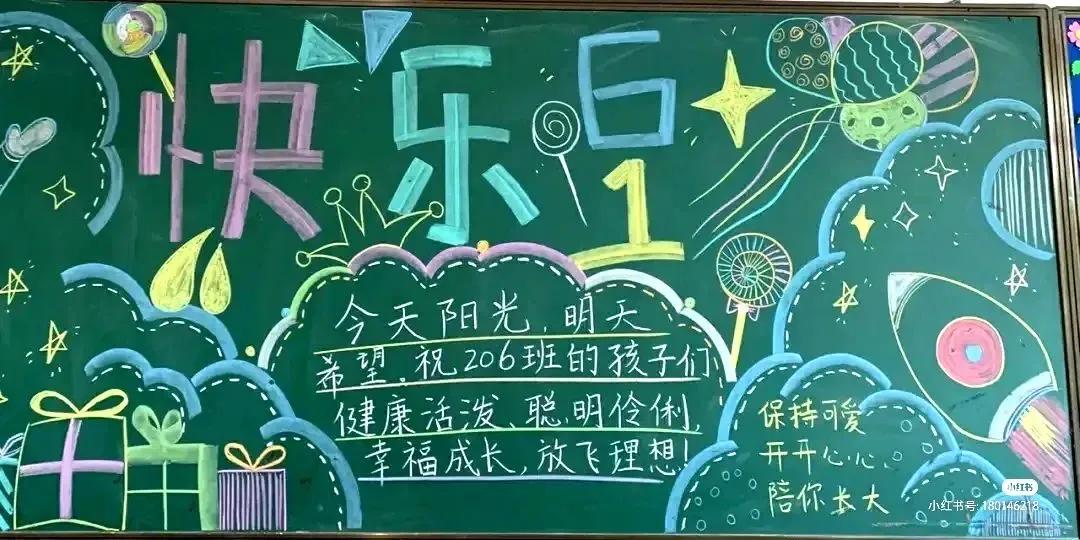 快乐61
今天阳光,明天
希望。祝206班的孩子们
健康活泼、聪明伶俐,
幸福成长,放飞理想!
保持可爱
开开心心、
陪你长大
小红书
小红书号:180146218